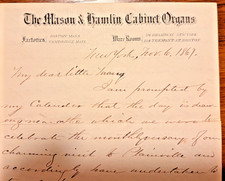 The Mason & Hamlin Cabinet Organs
Factories, Ware Rooms,
New York, Nov. 6, 1867.
My dear little Fanny
I am prompted by
my Calendar that the day is draw-
ing near which we move to
celebrate the monthversary of our
charming visit to Plainville and
accordingly have undertaken to